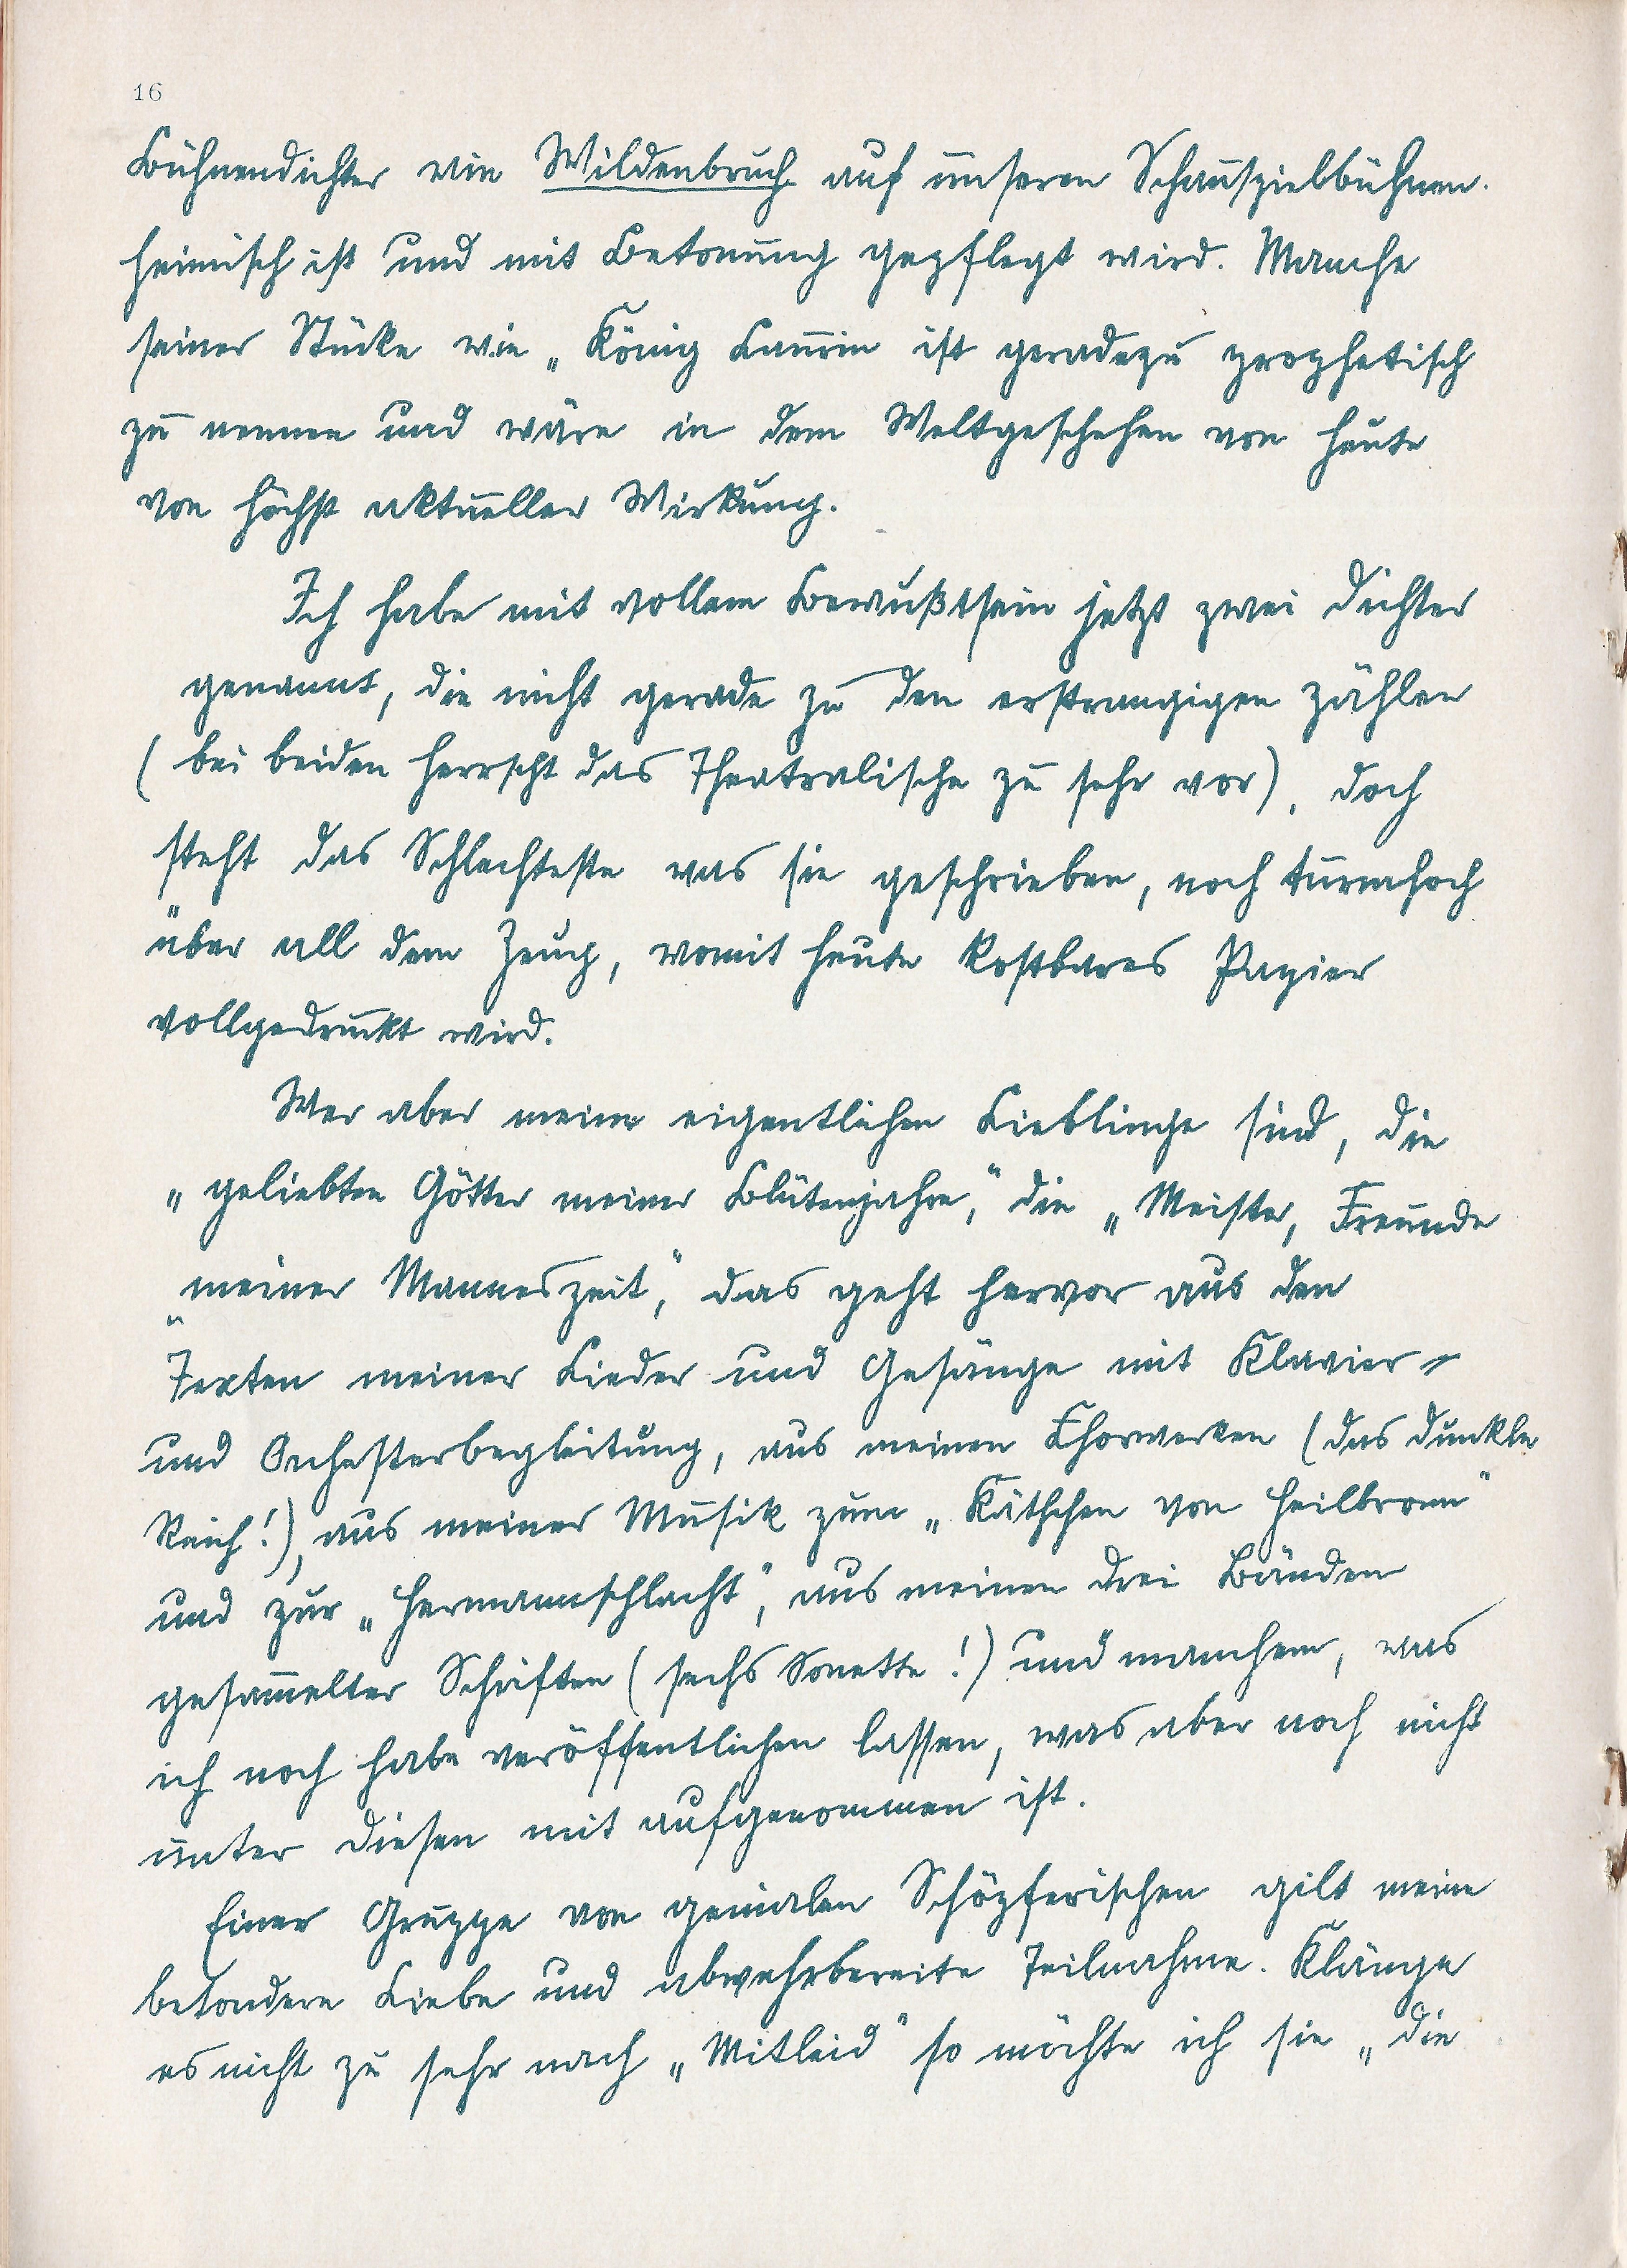 16
Bühnendichter wie Wildenbruch auf unseren Schauspielbühnen.
heimisch ist und mit Betonung gepflegt wird. Manche
seiner Stücke wie „König Laurin ist geradezu prophetisch
zu nennen und wäre in dem Weltgeschehen von heute
von höchst aktueller Wirkung.
Ich habe mit vollem Bewußtsein jetzt zwei Dichter
genannt, die nicht gerade zu den erstrangigen zählen
(bei beiden herrscht das Theatralische zu sehr vor), doch
steht das Schlechteste was sie geschrieben, noch turmhoch
über all dem Zeug, womit heute kostbares Papier
vollgedruckt wird.
Wer aber meine eigentlichen Lieblinge sind, die
„geliebten Götter meiner Blütenjahre," die „Meister, Freunde
„meiner Manneszeit", das geht hervor aus den
Texten meiner Lieder und Gesänge mit Klavier-
und Orchesterbegleitung, aus meinen Chorwerken (das dunkle
Reich!), aus meiner Musik zum „Käthchen von Heilbronn"
und zur „Hermannschlacht", aus meinen drei Bänden
gesammelter Schriften (sechs Sonette!) und manchem, was
ich noch habe veröffentlichen lassen, was aber noch nicht
unter diesen mit aufgenommen ist.
Einer Gruppe von genialen Schöpferischen gilt meine
besondere Liebe und abwehrbereite Teilnahme. Klänge
es nicht zu sehr nach „Mitleid" so möchte ich sie „die